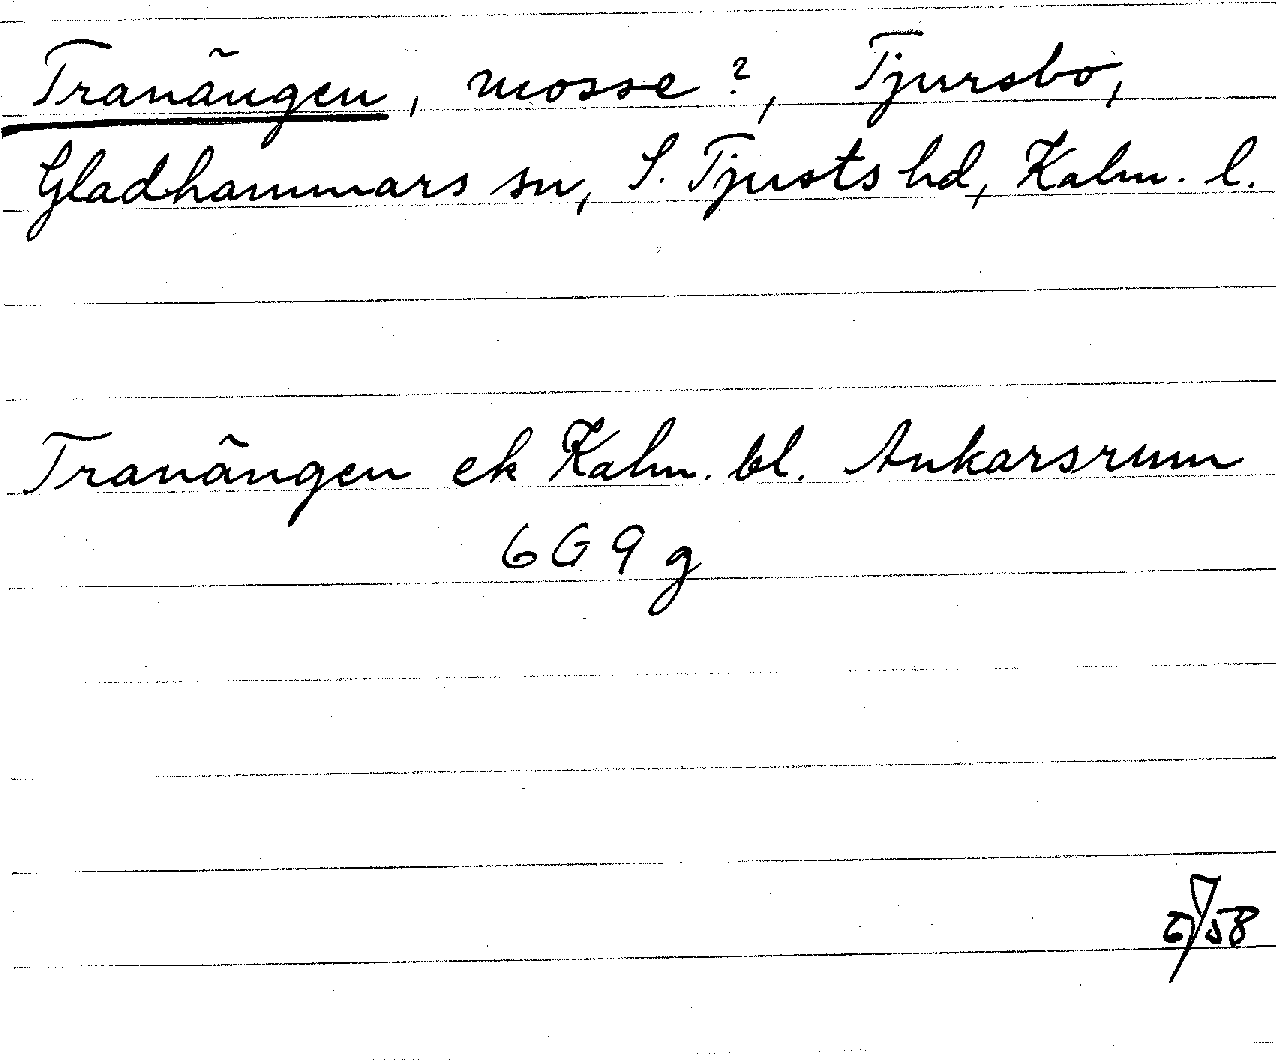 Tranängen, mosse?, Tjursbo,
Gladhammars sn, S. Tjusts hd, Kalm. l.
Tranängen ek Kalm. bl. Ankarsrum
6G9g